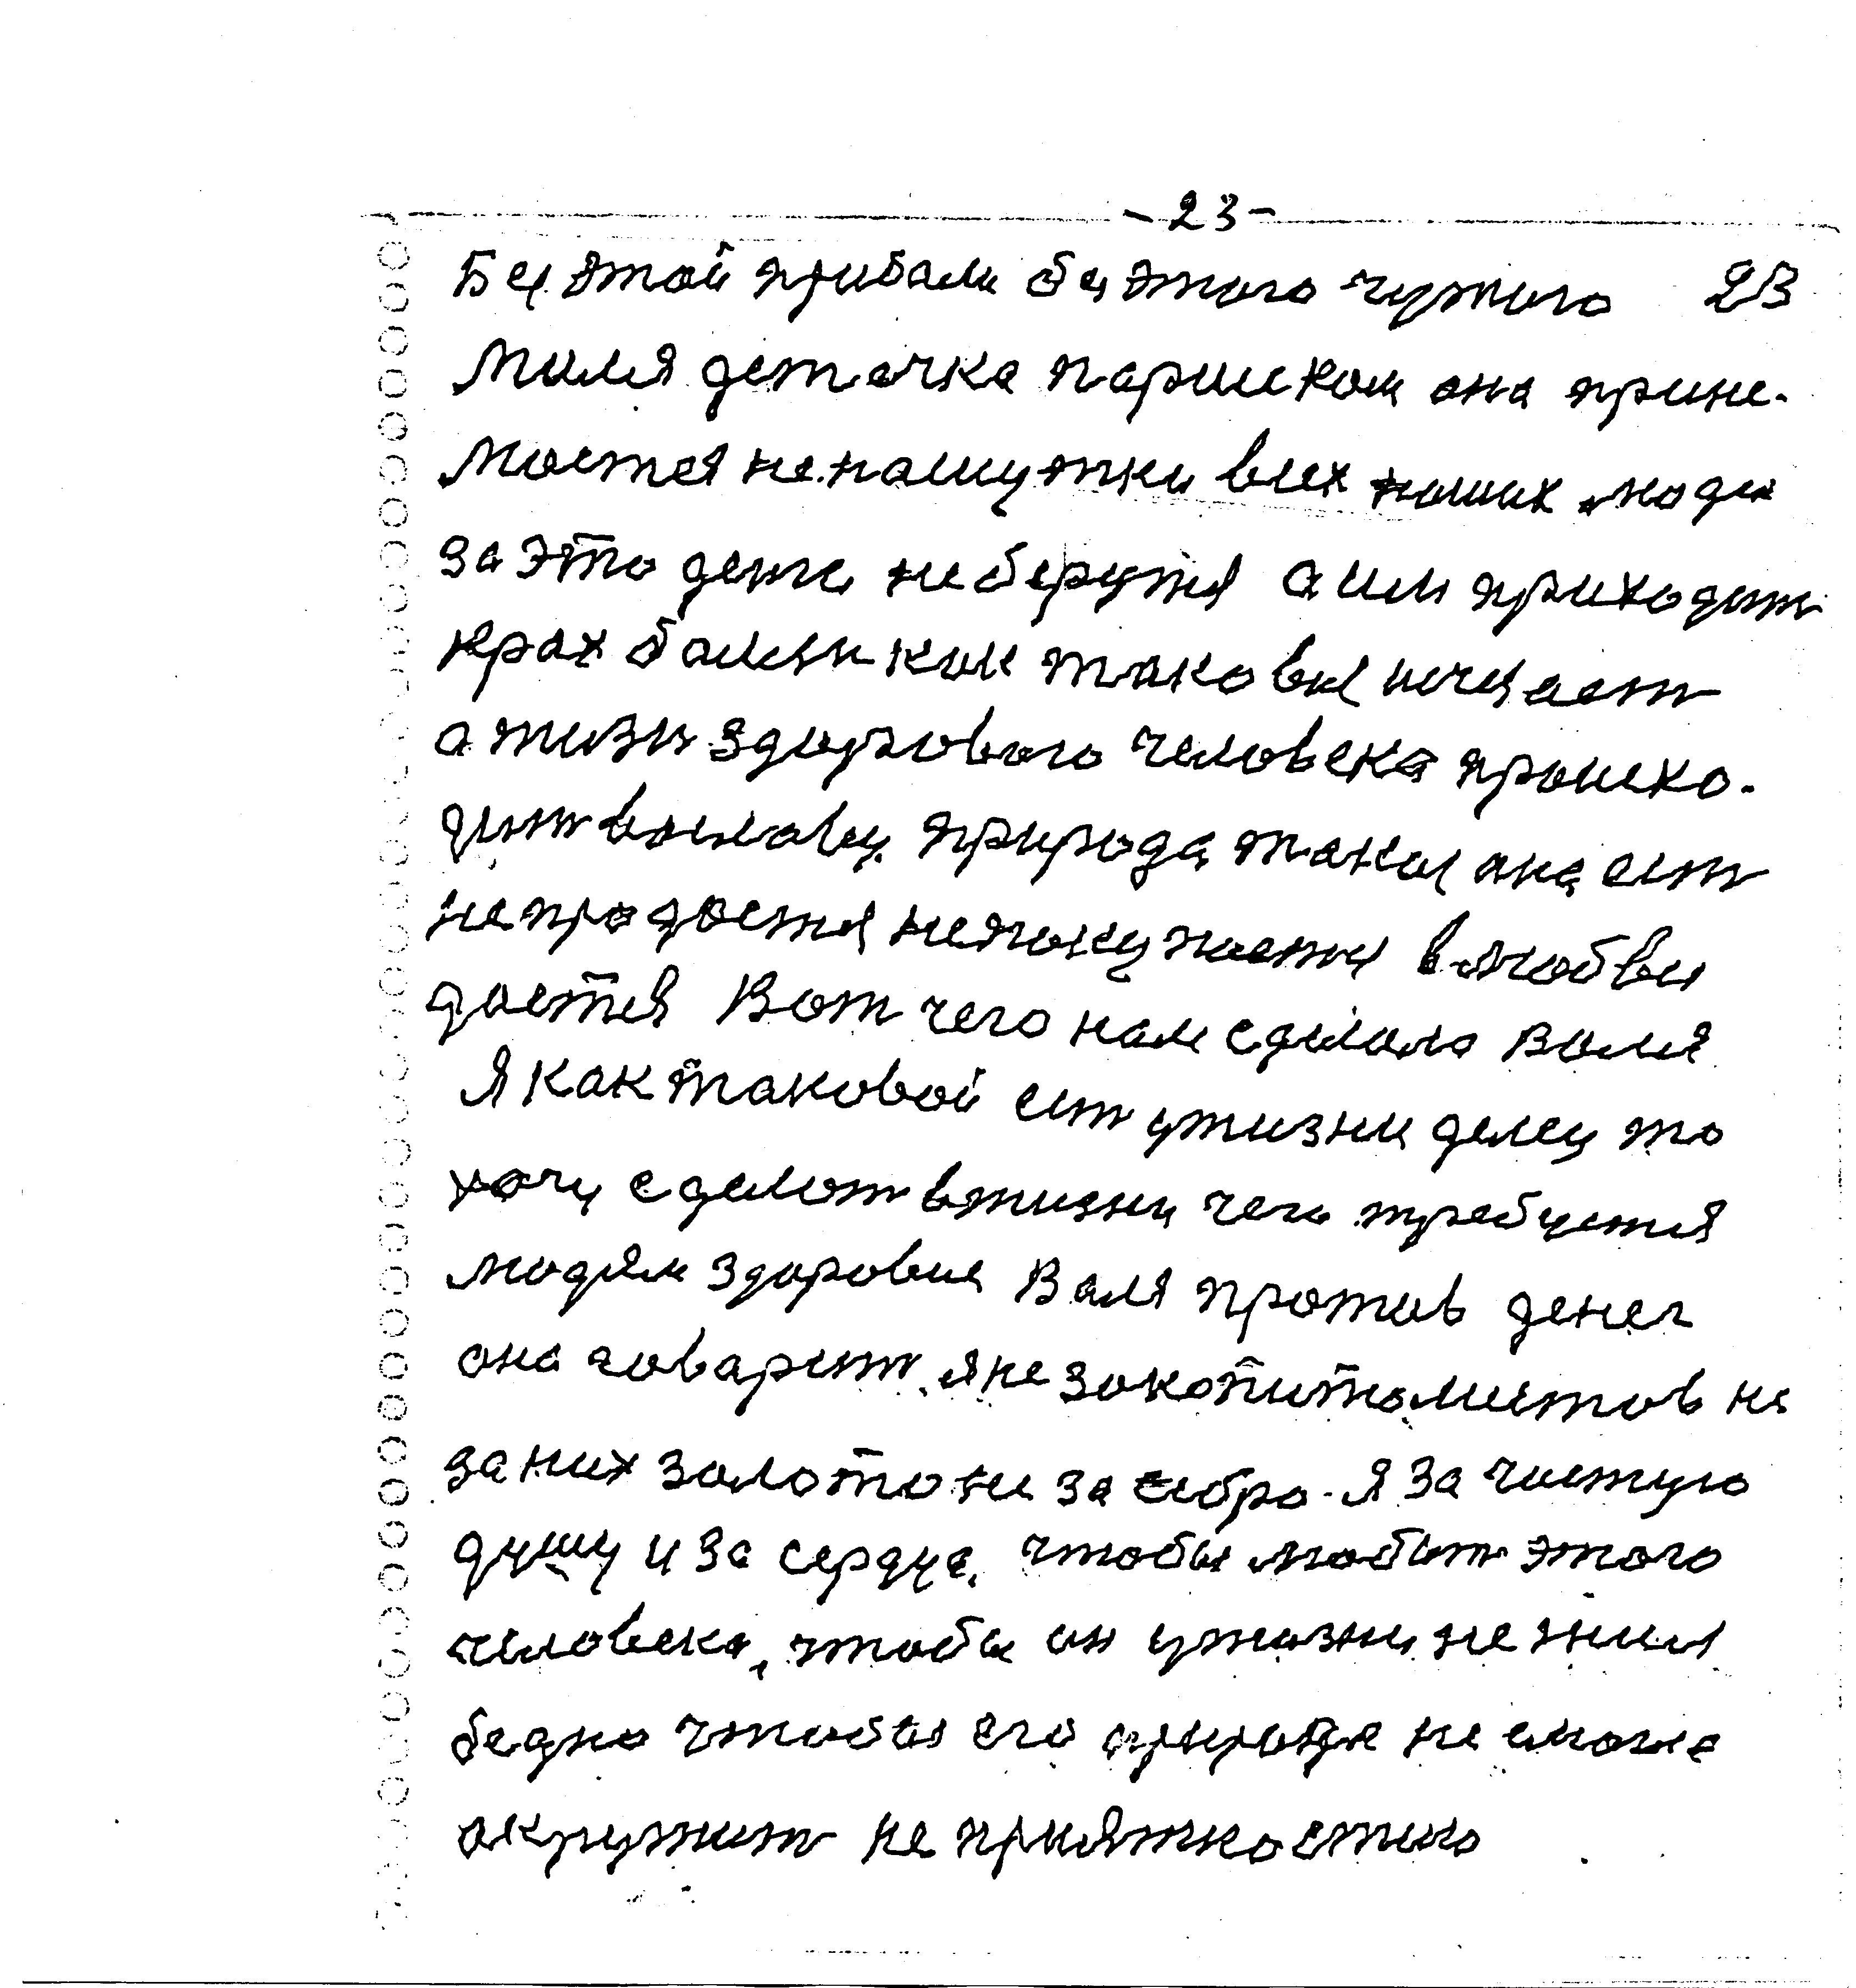 -23-
Без этой прибали без этого чужого 23
Миля деточка паршеком она прине-
моется не нашутки всех наших люди
за это дело не берутся а им приходит
крах болезни как таковы исчезает
а жизн здорового человека происхо-
дит вославу природа такая она ест
не продается непокупается в любви
дается Вот чего нам сделала Валя
Я как таковой ест ужизни делец то
хочу сделат вжизни чего требуется
людям здоровия Валя против денег
она говарит яне закопитолистов не
за них золото не за сибро. Я за чистую
душу и за сердце, чтобы любит этого
человека, чтобы он ужизни не жил
бедно чтобы его природа не смогла
окружит не приятностию